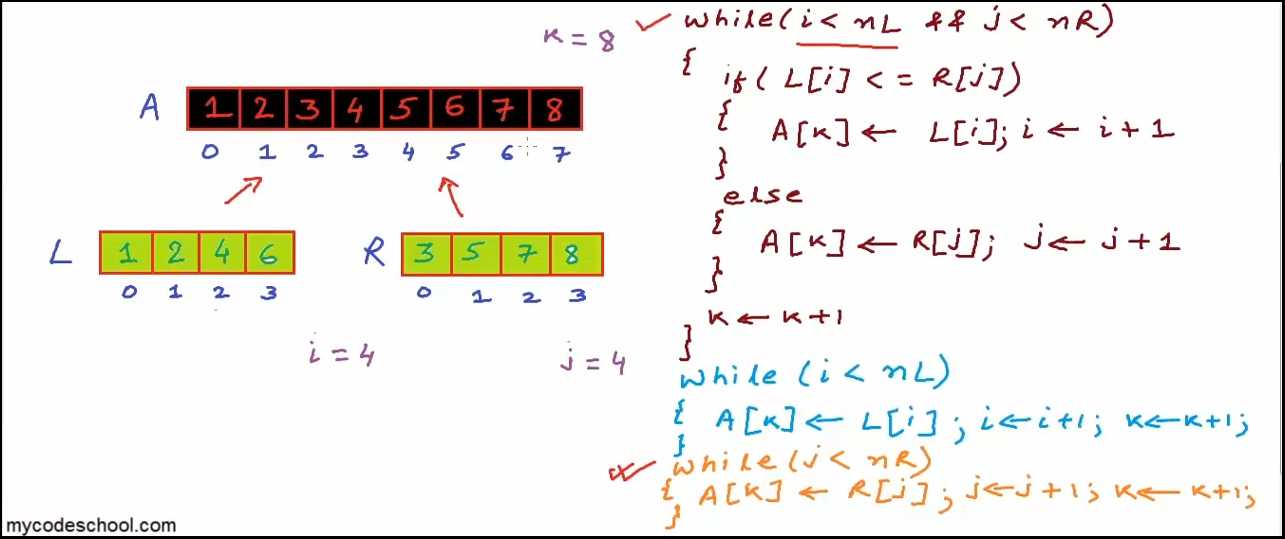 K = 8
A 1 2 3 4 5 6 7 8
0 1 2 3 4 5 6 7
L 1 2 4 6
0 1 2 3
R 3 5 7 8
0 1 2 3
i = 4
j = 4
while( i < nL && j < nR)
{ if( L[i] <= R[j])
{ A[K] ← L[i]; i ← i+1
}
else
{ A[K] ← R[j]; j ← j+1
}
K ← K+1
}
while (i < nL)
{ A[K] ← L[i]; i←i+1; K←K+1;
}
while(j < nR)
{ A[K] ← R[j]; j←j+1; K← K+1;
}
mycodeschool.com